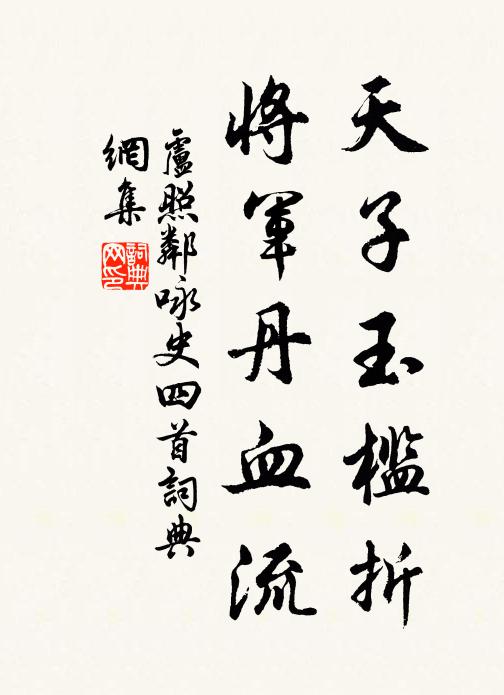 天子玉檻折
將軍丹血流
盧照鄰咏史四首詞典
網集
詞典
网印